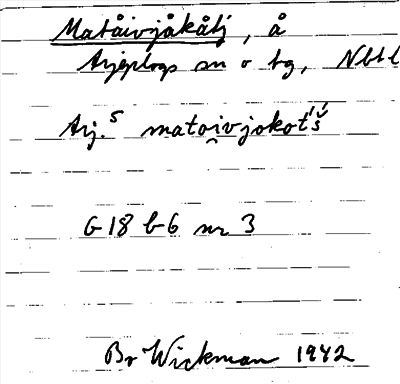 Matåivjåkåtj, å
Arjeplogs sn o tg, Nbtl
Arj.ˢ matoi̯vjokot́š́
G 18 b 6 nr 3
Br Wickman 1942